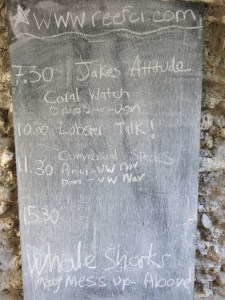 www.reefci.com
7.30 Jakes Attitude
Coral Watch
10.00 Lobster Talk!
11.30 Commercial Species
UW Nav
15.30
Whale Sharks
may mess up Above